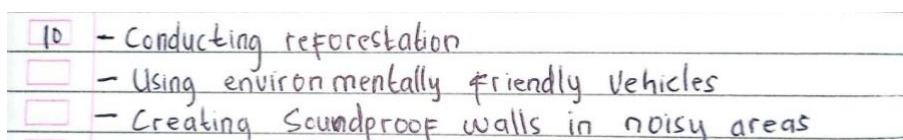 10 - Conducting reforestation
- Using environmentally friendly vehicles
- Creating Soundproof walls in noisy areas